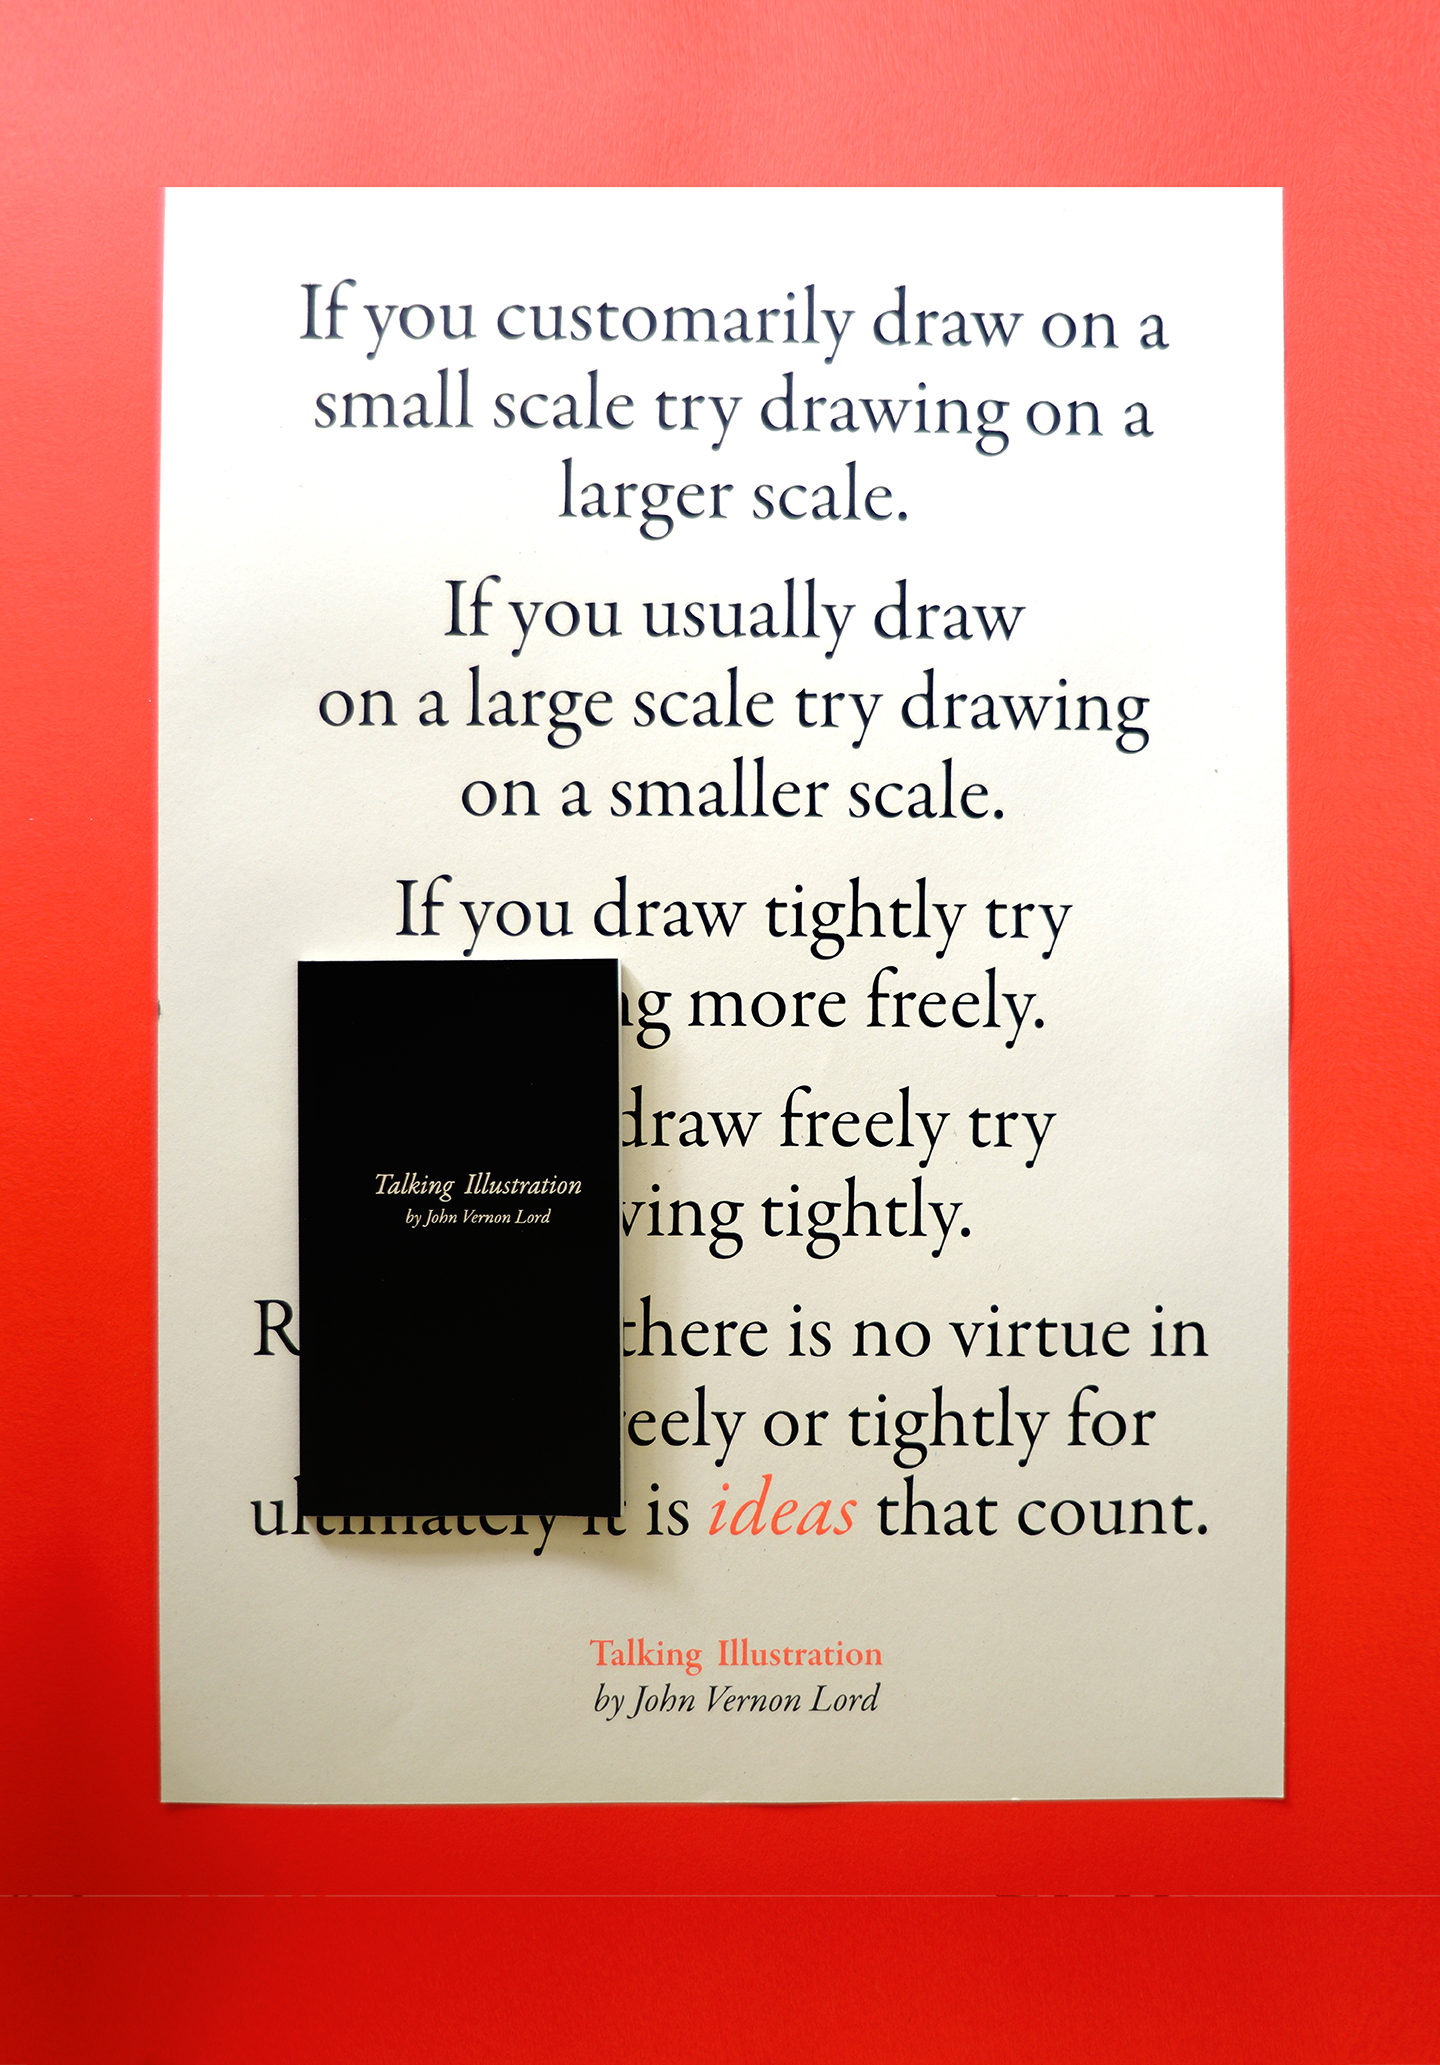 If you customarily draw on a
small scale try drawing on a
larger scale.
If you usually draw
on a large scale try drawing
on a smaller scale.
If you draw tightly try
more freely.
draw freely try
tightly.
there is no virtue in
or tightly for
ultimately it is ideas that count.
Talking Illustration
by John Vernon Lord
Talking Illustration
by John Vernon Lord